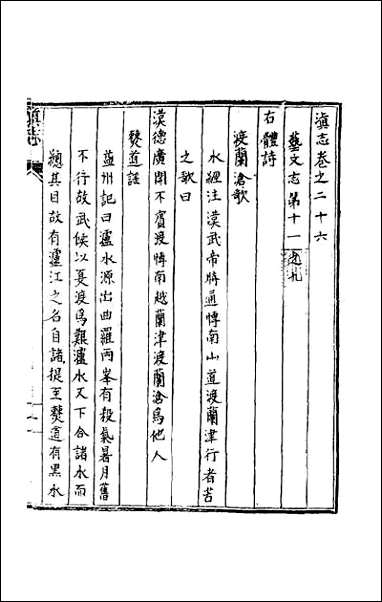 滇志卷之二十六
藝文志第十一之九
古體詩
渡蘭滄歌
水經注漢武帝時通博南山道渡蘭津行者苦
之歌曰
漢德廣開不賓渡博南越蘭津渡蘭滄為他人
僰道謡
益州記曰瀘水源出曲羅兩峯有殺氣暑月舊
不行故武侯以夏渡為艱瀘水又下合諸水而
總其目故有瀘江之名自諸提至僰道有黑水
滇志